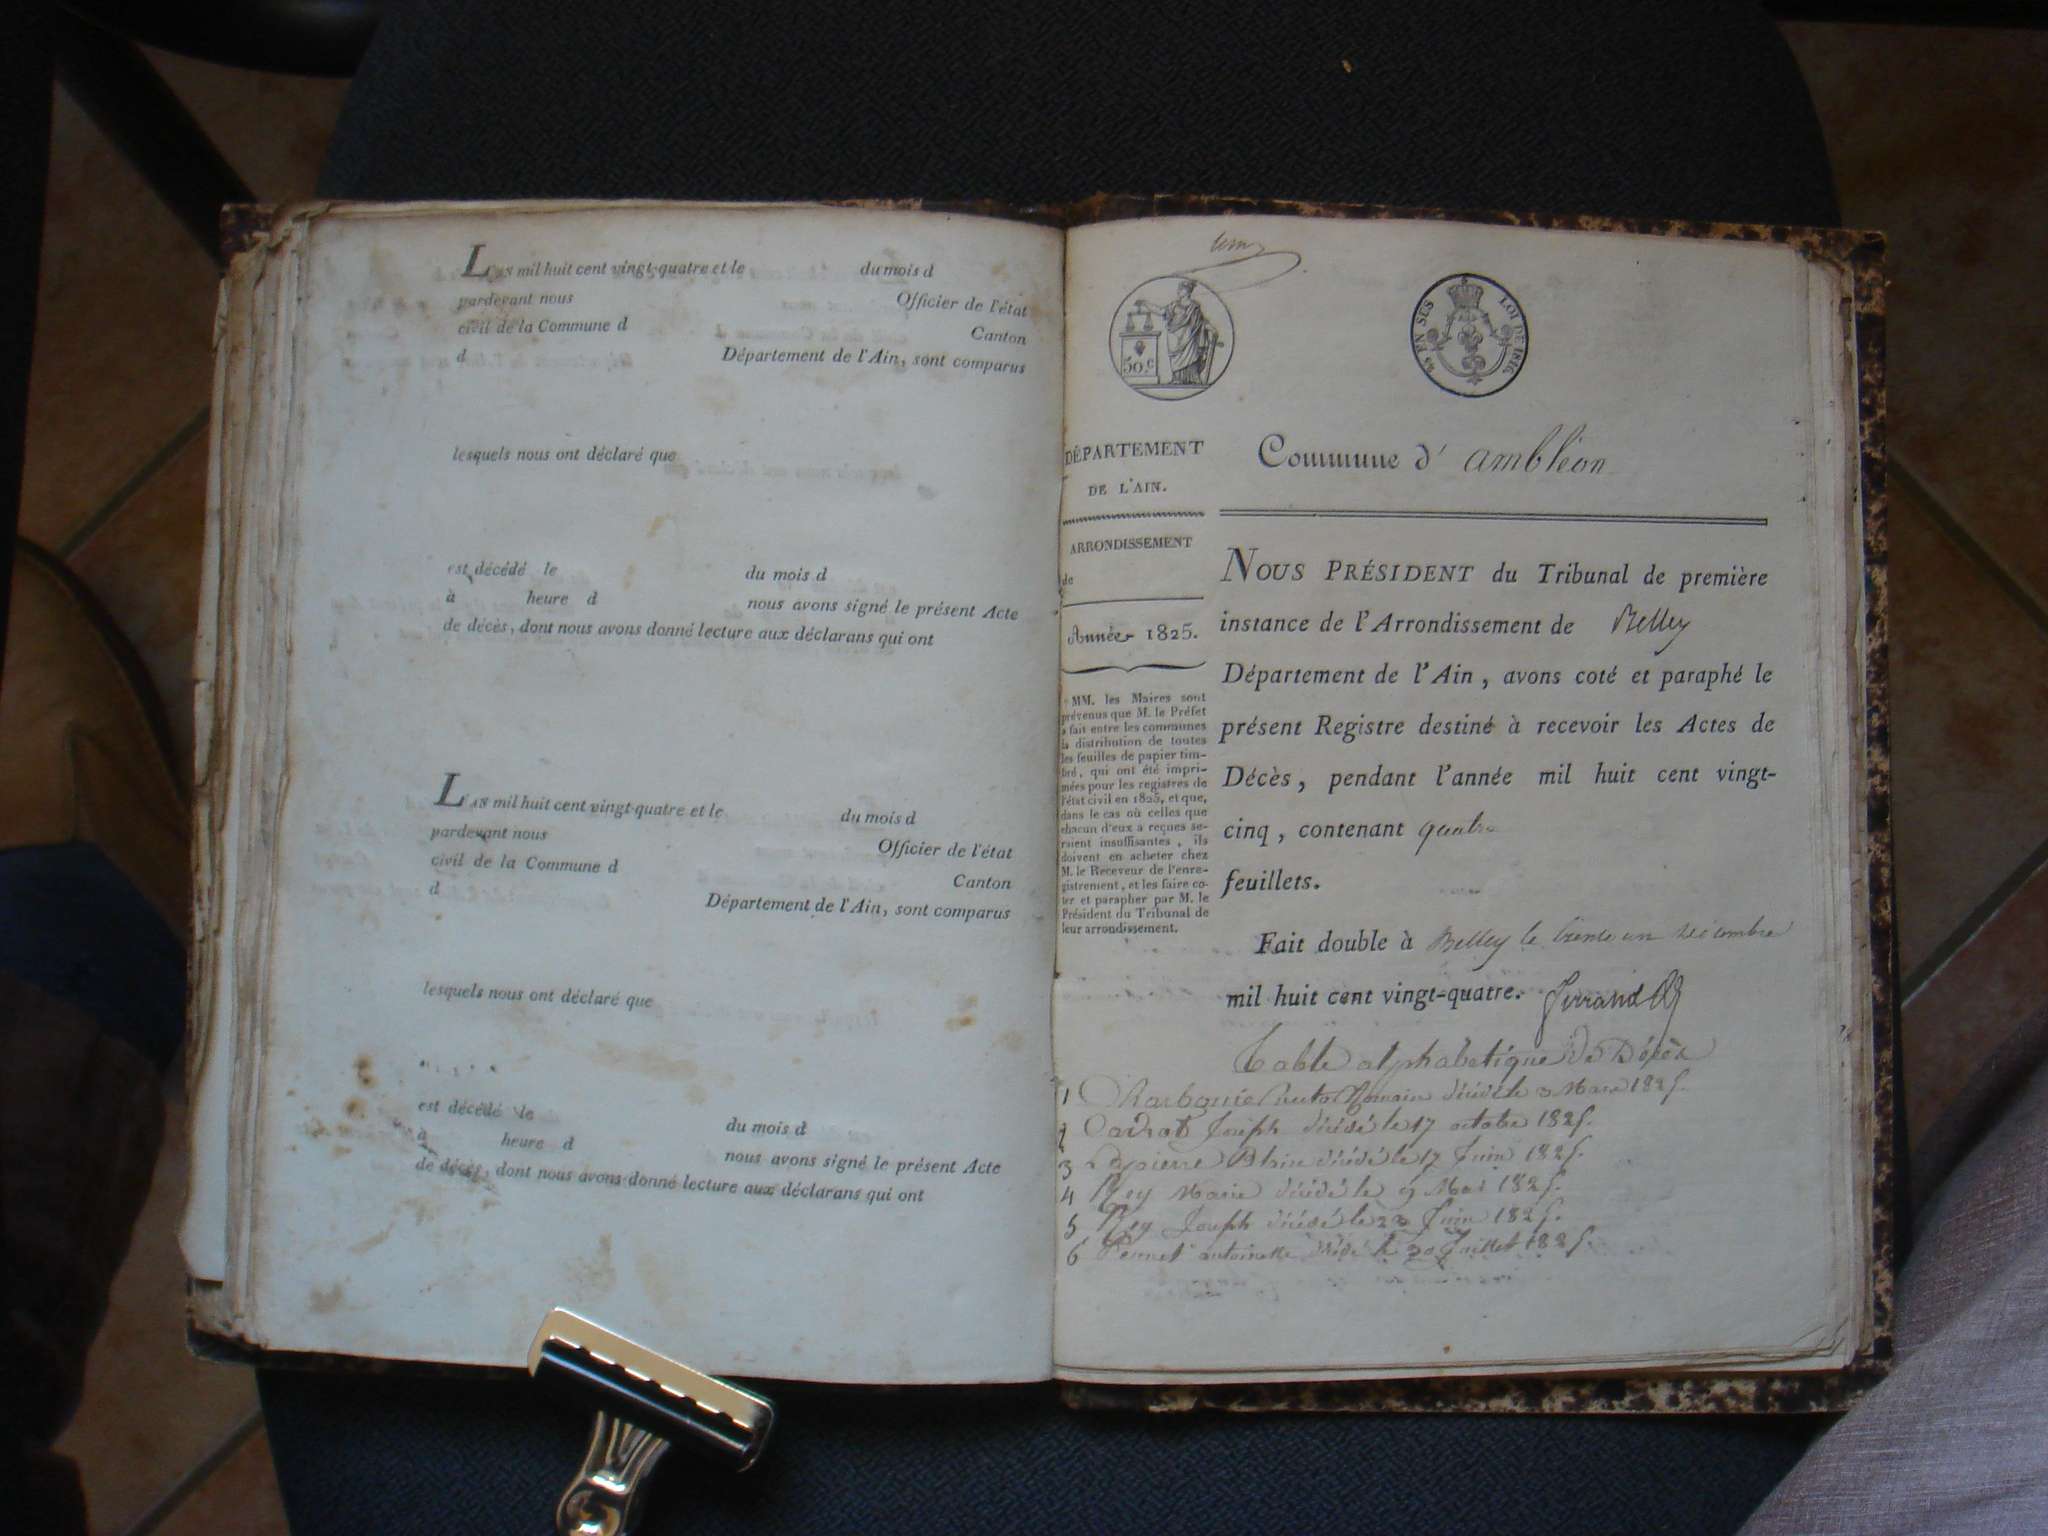 L'AN mil huit cent vingt-quatre et le du mois d
pardevant nous Officier de l'état
civil de la Commune d Canton
d Département de l'Ain, sont comparus
lesquels nous ont déclaré que
est décédé le du mois d
à heure d nous avons signé le présent Acte
de décès, dont nous avons donné lecture aux déclarans qui ont
L'AN mil huit cent vingt-quatre et le du mois d
pardevant nous Officier de l'état
civil de la Commune d Canton
d Département de l'Ain, sont comparus
lesquels nous ont déclaré que
est décédé le du mois d
à heure d nous avons signé le présent Acte
de décès, dont nous avons donné lecture aux déclarans qui ont
50.c
EN SUS LOI DE 1816.
DÉPARTEMENT
DE L'AIN.
ARRONDISSEMENT
de
Année 1825.
MM. les Maires sont
prévenus que M. le Préfet
a fait entre les communes
la distribution de toutes
les feuilles de papier tim-
bré, qui ont été impri-
mées pour les registres de
l'état civil en 1825, et que,
dans le cas où celles que
chacun d'eux a reçues se-
raient insuffisantes, ils
doivent en acheter chez
M. le Receveur de l'enre-
gistrement, et les faire co-
ter et parapher par M. le
Président du Tribunal de
leur arrondissement.
Commune d' ambléon
NOUS PRÉSIDENT du Tribunal de première
instance de l'Arrondissement de Belley
Département de l'Ain, avons coté et paraphé le
présent Registre destiné à recevoir les Actes de
Décès, pendant l'année mil huit cent vingt-
cinq, contenant quatre
feuillets.
Fait double à Belley le trente un décembre
mil huit cent vingt-quatre. Ferrand
Table alphabetique de Décès
1 décédé le 3 Mars 1825.
2 Joseph décédé le 17 octobre 1825.
3 Lapierre Blaise décédé le 17 Juin 1825.
4 Rey Marie décédé le 9 Mai 1825.
5 Rey Joseph décédé le 23 Juin 1825.
6 antoinette décédé le 30 Juillet 1825.